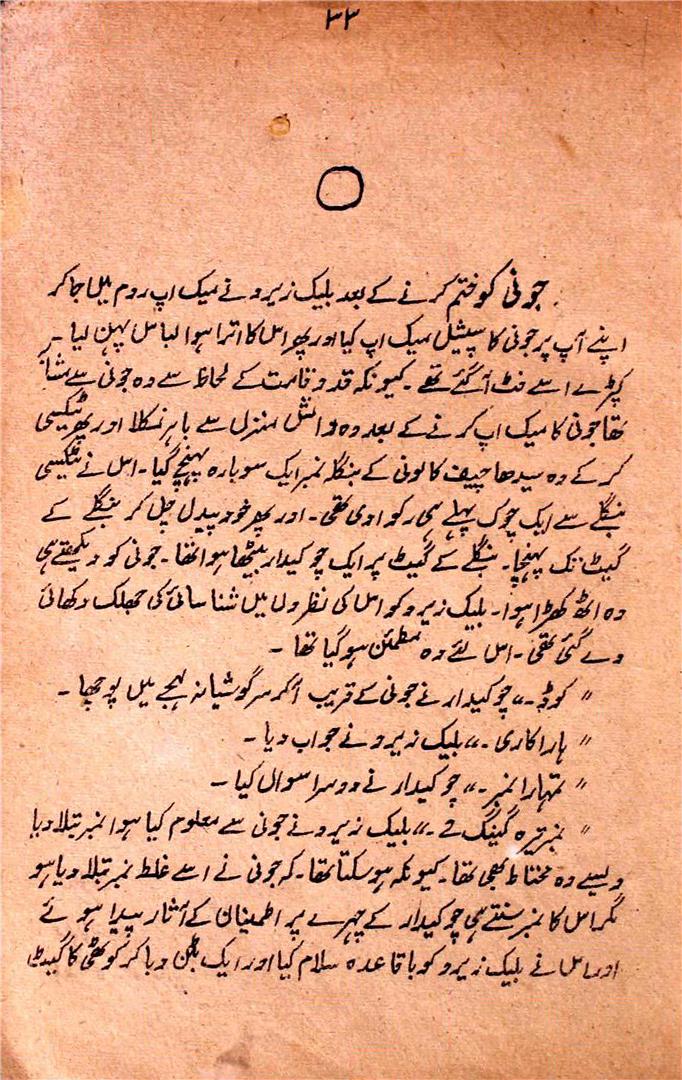 ۳۳
جونی کو ختم کرنے کے بعد بلیک زیرو نے میک اپ روم میں جا کر
اپنے آپ پر جونی کا سپیشل میک اپ کیا اور پھر اس کا اترا ہوا لباس پہن لیا۔
کپڑے اسے فٹ آ گئے تھے۔ کیونکہ قد و قامت کے لحاظ سے وہ جونی سے
تھا جونی کا میک اپ کرنے کے بعد وہ دانش منزل سے باہر نکلا اور پھر ٹیکسی
کر کے وہ سیدھا چیف کالونی کے بنگلہ نمبر ایک سو بارہ پہنچ گیا۔ اس نے ٹیکسی
بنگلے سے ایک چوک پہلے ہی رکوا دی تھی۔ اور پھر خود پیدل چل کر بنگلے کے
گیٹ تک پہنچا۔ بنگلے کے گیٹ پر ایک چوکیدار بیٹھا ہوا تھا۔ جونی کو دیکھتے ہی
وہ اٹھ کھڑا ہوا۔ بلیک زیرو کو اس کی نظروں میں شناسائی کی جھلک دکھائی
دے گئی تھی۔ اس لئے وہ مطمئن ہو گیا تھا۔
"کوڈ۔" چوکیدار نے جونی کے قریب آ کر سرگوشیانہ لہجے میں پوچھا۔
"ہاراکاری۔" بلیک زیرو نے جواب دیا۔
"تمہارا نمبر۔" چوکیدار نے دوسرا سوال کیا۔
"نمبر تیرہ گینگ تے۔" بلیک زیرو نے جونی سے معلوم کیا ہوا نمبر بتلا دیا
ویسے وہ محتاط بھی تھا۔ کیونکہ ہو سکتا تھا۔ کہ جونی نے اسے غلط نمبر بتلا دیا ہو
مگر اس کا نمبر سنتے ہی چوکیدار کے چہرے پر اطمینان کے آثار پیدا ہوئے
اور اس نے بلیک زیرو کو باقاعدہ سلام کیا اور ایک بٹن دبا کر کوٹھی کا گیٹ